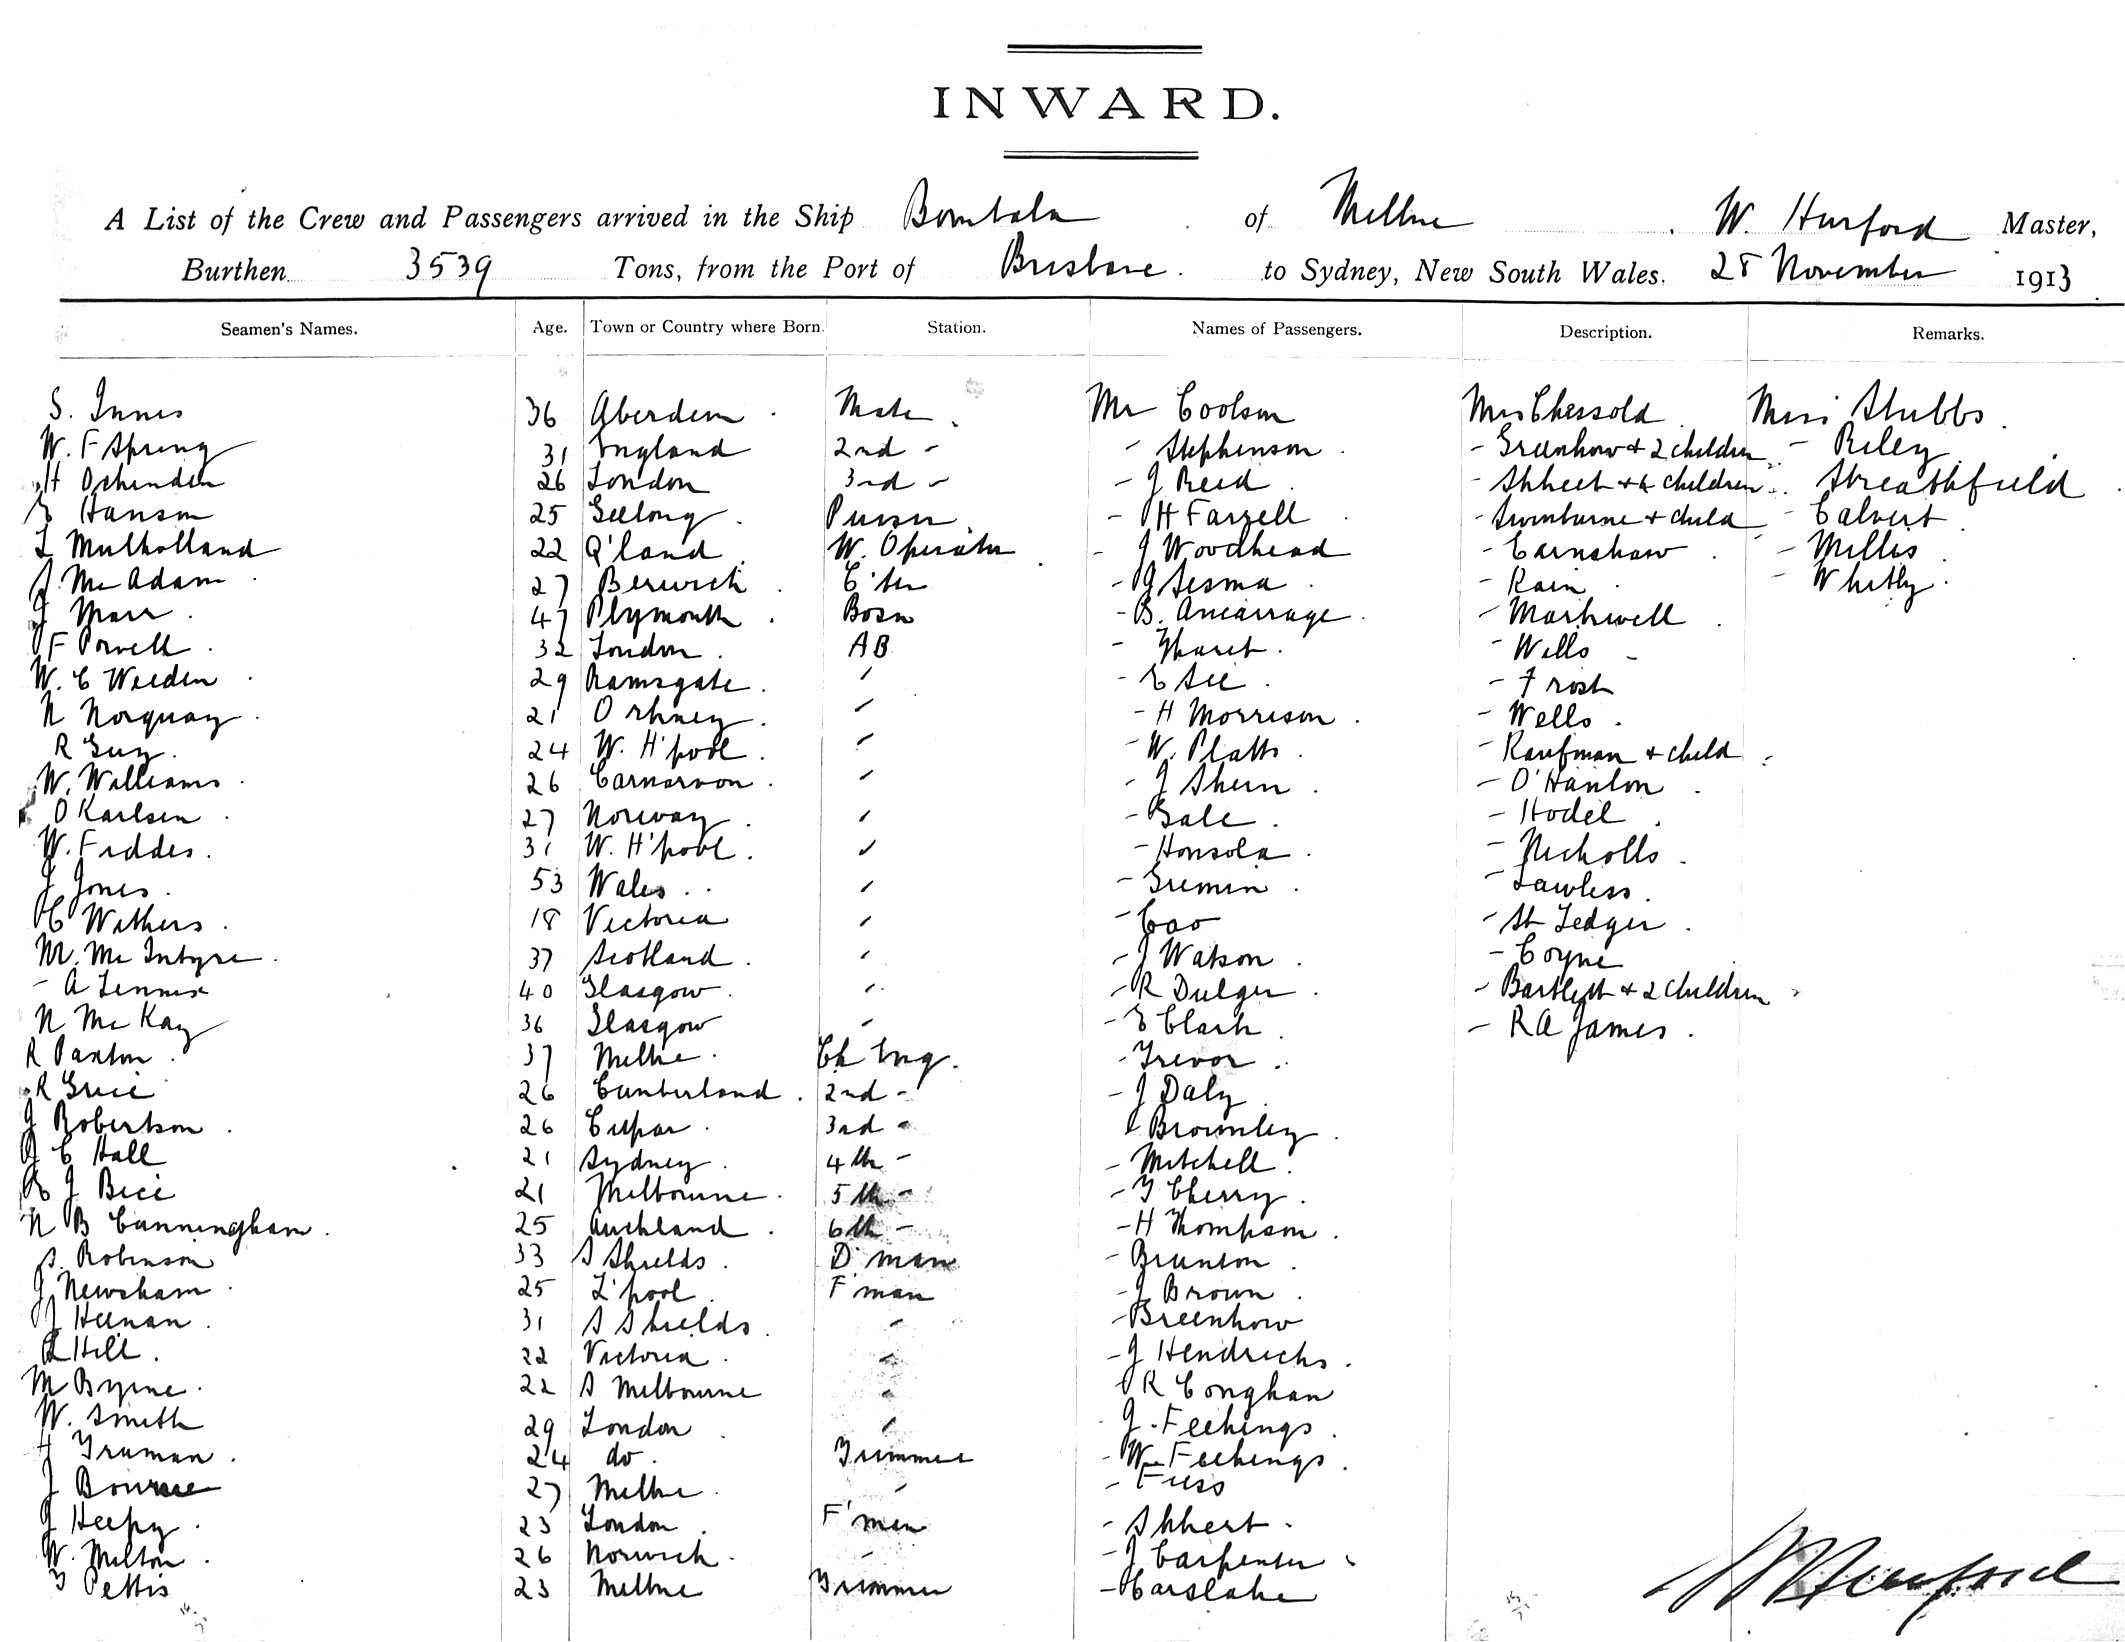 INWARD.
A List of the Crew and Passengers arrived in the Ship Bombala of Melbne W. Hurford Master,
Burthen 3539 Tons, from the Port of Brisbane. to Sydney, New South Wales. 28 November 1913
Seamen's Names. Age. Town or Country where Born. Station. Names of Passengers. Description. Remarks.
S. Innes 36 Aberdeen Mate Mr Coolson Mrs Chessold Miss Stubbs
W. F Spring 31 England 2nd - - Stephenson - Greenhow + 2 children - Riley
H Oshenden 26 London 3rd - - J Reed - + 4 children Streathfield
E Hanson 25 Geelong Purser - H Farzell - Swinburne + child - Calvert
L Mulholland 22 Q'land W. Operator - J Woodhead - Earnshaw - Millis
J. McAdam 27 Berwick C'ter - J Sesma - Rain - Whitly
J Marr 47 Plymouth Bosn - B. Amarrage - Markwell
F Powell 32 London AB - - Wills
W. C Weeden 29 Ramsgate " - E See - Frost
N Norquay 21 Orkney " - H Morrison - Wells
R Guy 24 W. H'pool " - W. Platts - Kaufman + child
W. Williams 26 Carnarvon " - J Shein - O'Hanlon
O Karlsen 27 Norway " - Gale - Hodel
W. Fiddes 31 W. H'pool " - Honsola - Nicholls
J Jones 53 Wales " - Gremin - Lawless
C Withers 18 Victoria " - Cao - St Ledger
M. McIntyre 37 Scotland " - J Watson - Coyne
A Lennox 40 Glasgow " - R Dulger - Bartlett + 2 children
N McKay 36 Glasgow " - E Clark - R A James
R Paxton 37 Melbne Ch Eng. - Trevor
R Grice 26 Cumberland 2nd - - J Daly
J Robertson 26 Cupar 3rd - Bromley
J C Hall 21 Sydney 4th - - Mitchell
R J Bice 21 Melbourne 5th - - T Cherry
N B Cunningham 25 Auckland 6th - - H Thompson
S. Robinson 33 S Shields D'man - Brunton
J Newsham 25 L'pool F'man - J Brown
J Heenan 31 S Shields " - Greenhow
R Hill 22 Victoria " - J Hendricks
M Byrne 22 S Melbourne " R Conghan
W. Smith 29 London " J. Feehings
H Truman 24 do Trimmer - Wm Feehings
J Bourne 27 Melbne " - Fuss
J Heepy 23 London F'men -
W. Milton 26 Norwich " - J Carpenter
T Pettis 23 Melbne Trimmer - Carslake
W Hurford